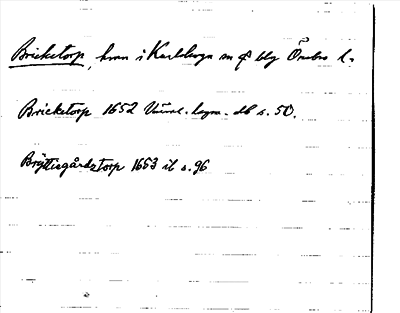 Bricketorp, hmn i Karlskoga sn o bg Örebro l.
Bricketorp 1652 db s. 50.
Bryttiegårdztorp 1653 il s. 96